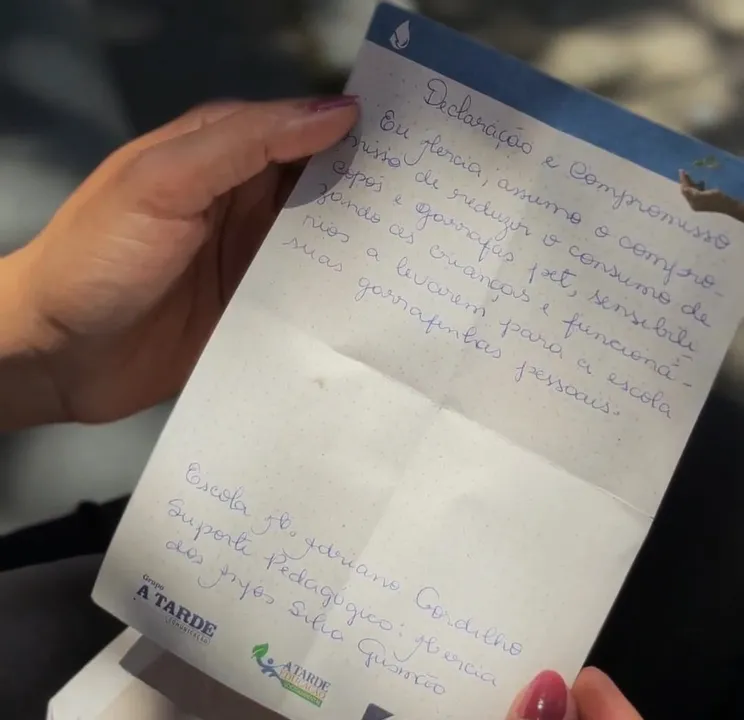 Declaração e Compromisso
Eu Hercia, assumo o compro-
misso de reduzir o consumo de
copos e garrafas pet, sensibili
zando as crianças e funcioná-
rios a levarem para a escola
suas garrafinhas pessoais.
Escola M. Adriano Gordilho
Suporte Pedagógico: Hercia
dos Anjos Silva Gusmão
Grupo
A TARDE
COMUNICAÇÃO
A TARDE
EDUCAÇÃO